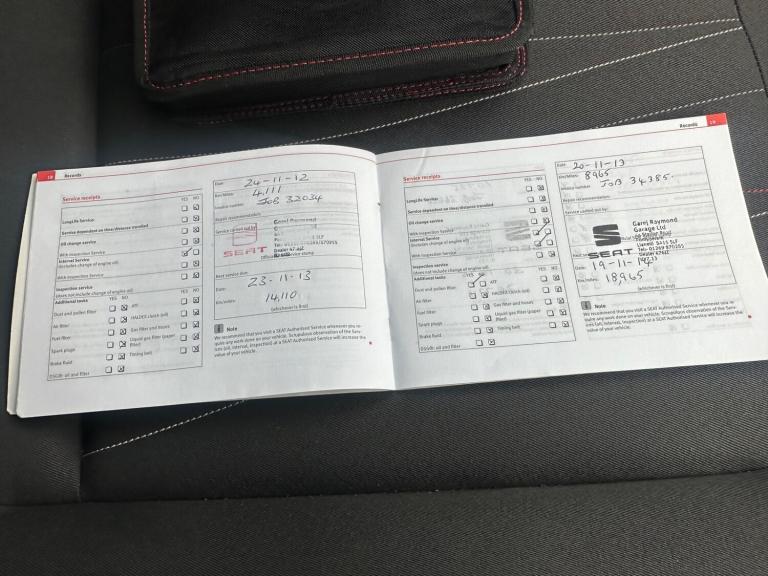 18 Records
Service receipts
YES NO
LongLife Service
Service dependent on time/distance travelled
Oil change service
With inspection Service
Internal Service
(includes change of engine oil)
With inspection Service
Inspection service
(does not include change of engine oil)
Additional tasks
YES NO
YES NO
Dust and pollen filter
ATF
Air filter
HALDEX clutch (oil)
Fuel filter
Gas filter and hoses
Spark plugs
Liquid gas filter (paper filter)
Brake fluid
Timing belt
DSG®: oil and filter
Date: 24-11-12
Km/Miles: 4,111
Invoice number: JOB 32034
Repair recommendation:
Service carried out by:
SEAT
Garej Raymond
Next service due:
Date: 23-11-13
Km/Miles: 14,110
(whichever is first)
Note
We recommend that you visit a SEAT Authorised Service whenever you require any work done on your vehicle. Scrupulous observation of the Services (oil, interval, inspection) at a SEAT Authorised Service will increase the value of your vehicle.
Records 19
Service receipts
YES NO
LongLife Service
Service dependent on time/distance travelled
Oil change service
With inspection Service
Internal Service
(includes change of engine oil)
With inspection Service
Inspection service
(does not include change of engine oil)
Additional tasks
YES NO
YES NO
Dust and pollen filter
ATF
Air filter
HALDEX clutch (oil)
Fuel filter
Gas filter and hoses
Spark plugs
Liquid gas filter (paper filter)
Brake fluid
Timing belt
DSG®: oil and filter
Date: 20-11-13
Km/Miles: 8965
Invoice number: JOB 34385
Repair recommendation:
Service carried out by:
SEAT
Garej Raymond
Garage Ltd
Date: 19-11-14
Km/Miles: 18,965
(whichever is first)
Note
We recommend that you visit a SEAT Authorised Service whenever you require any work done on your vehicle. Scrupulous observation of the Services (oil, interval, inspection) at a SEAT Authorised Service will increase the value of your vehicle.